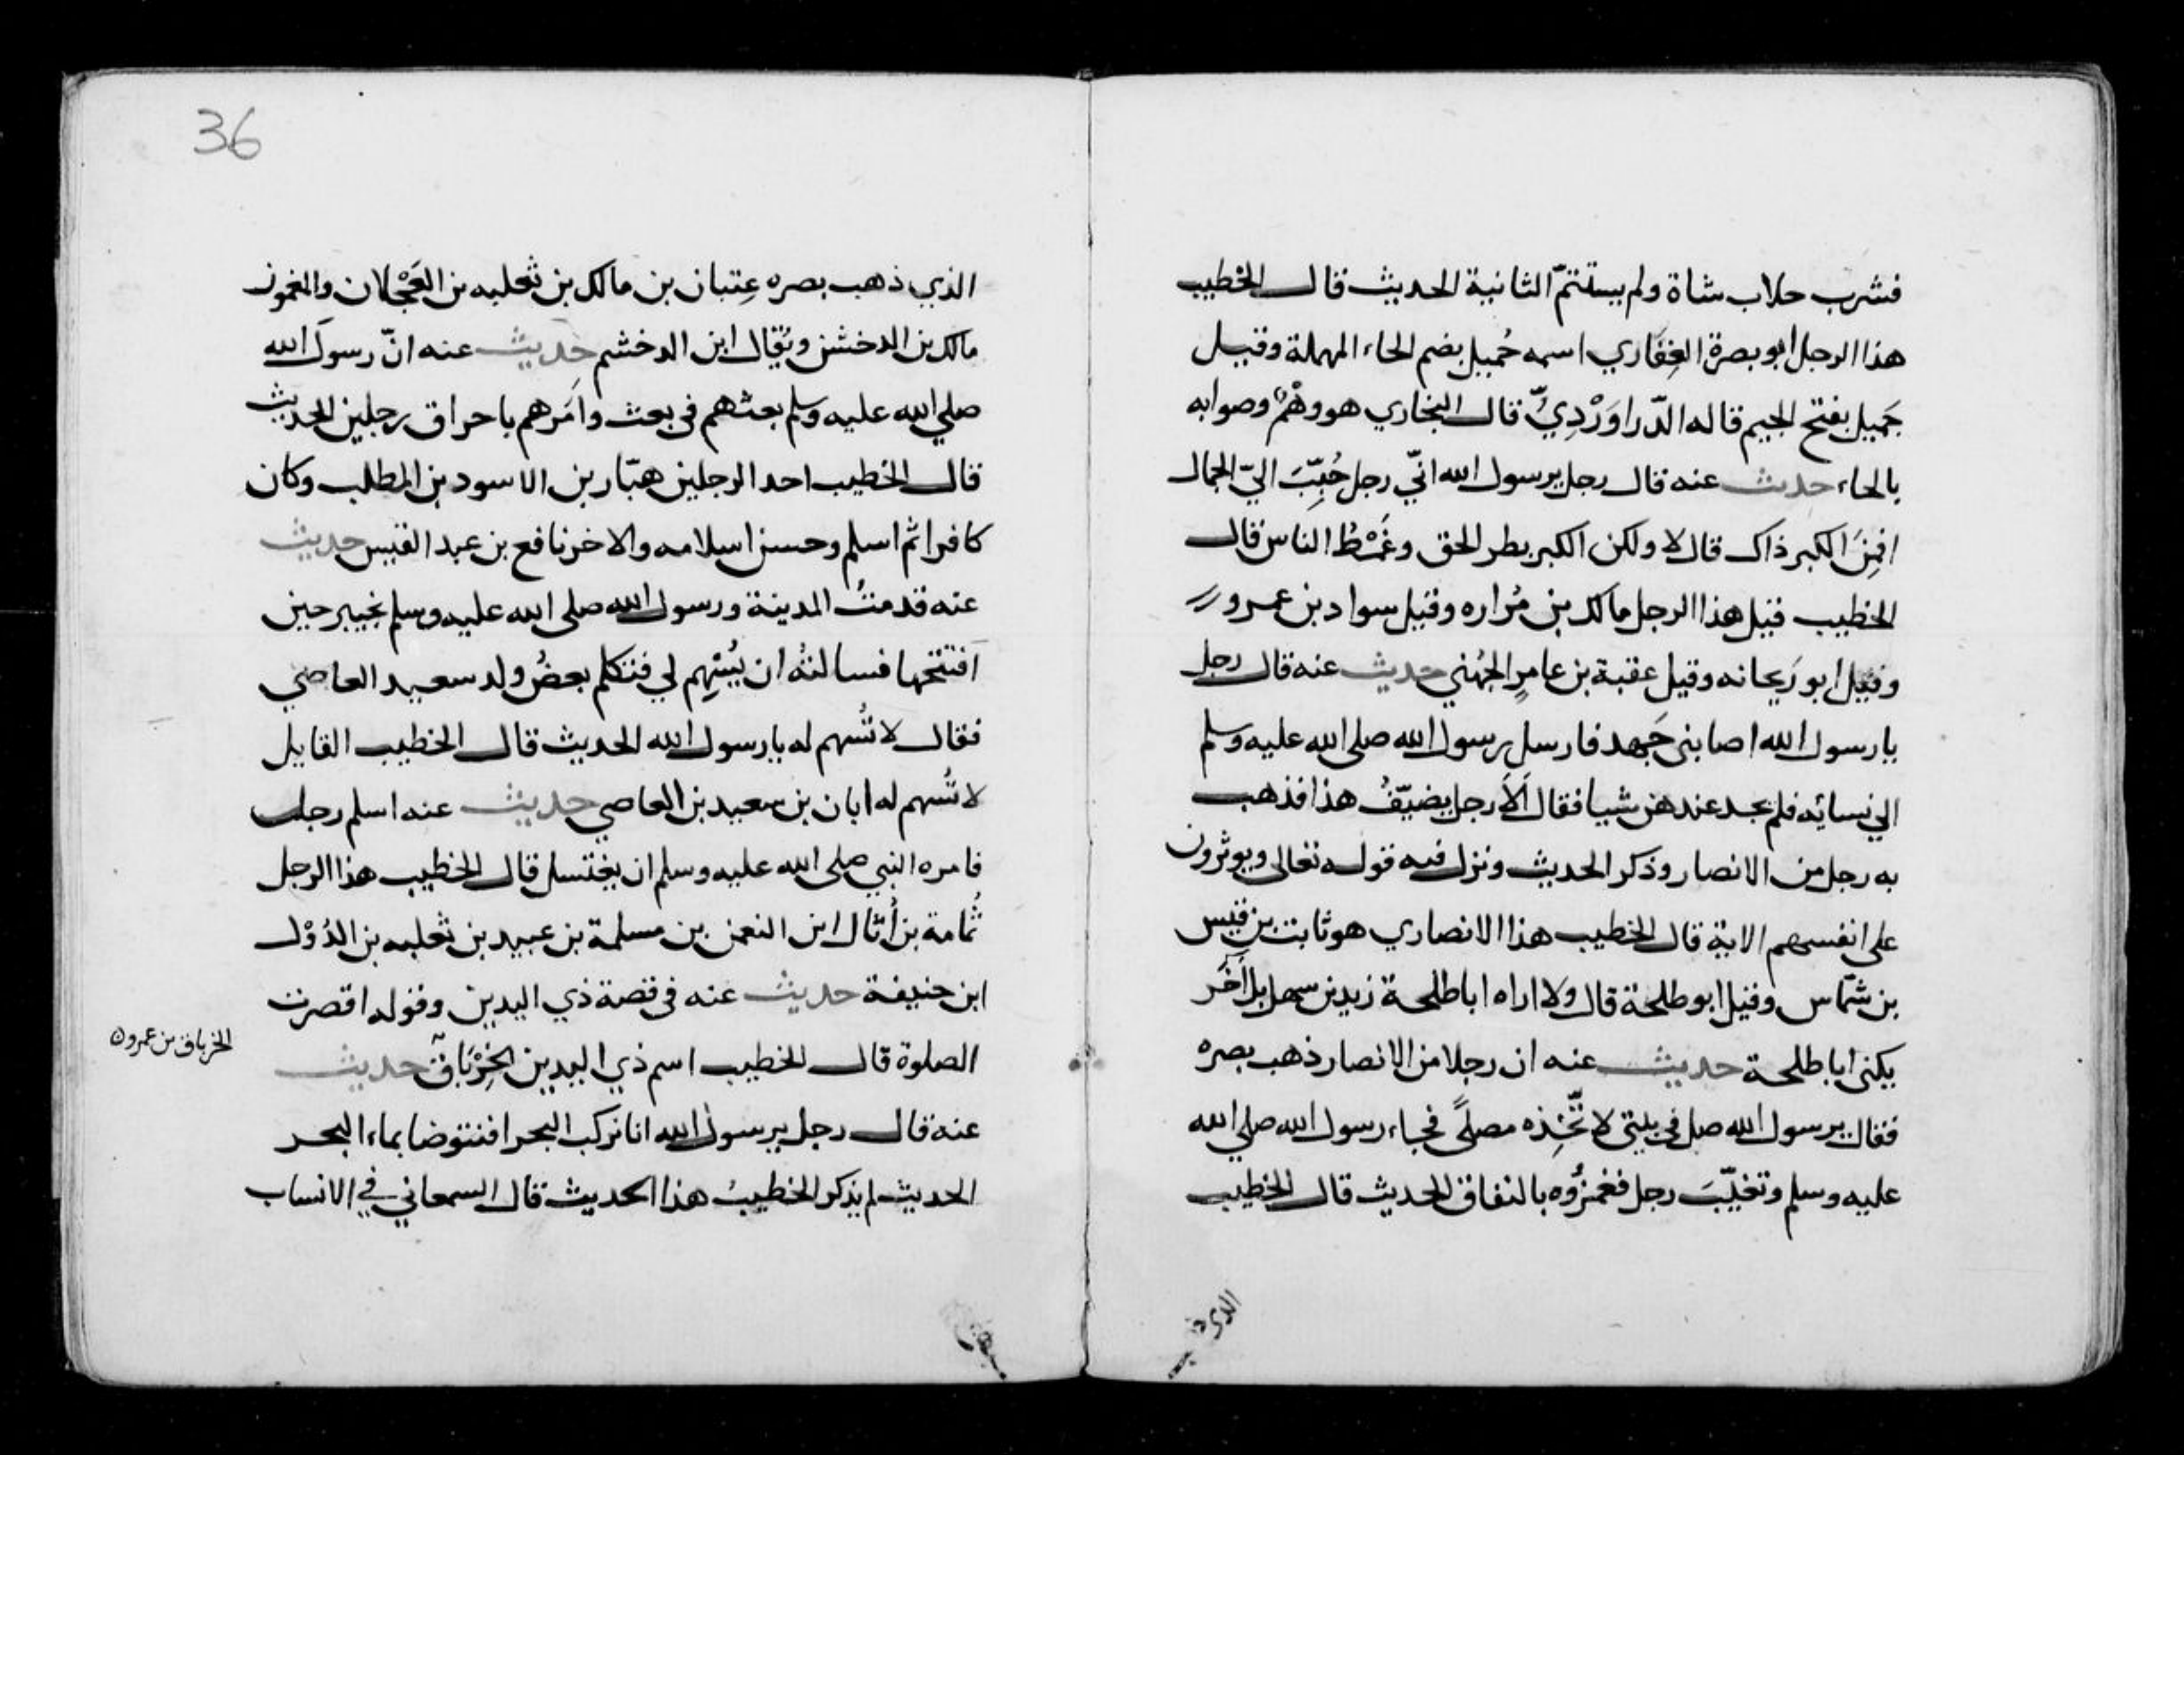 فشرب حلاب شاة ولم يستتمّ الثانية الحديث قال الخطيب
هذا الرجل ابو بصرة الغِفَاري اسمه حُميل بضم الحاء المهملة وقيل
جَميل بفتح الجيم قاله الدّراوَرْدِيّ قال البخاري هو وهْمٌ وصوابه
بالحاء حديث عنه قال رجل يرسول الله انّي رجل حُبِّبَ اليّ الجمال
افمِنَ الكبر ذاك قال لا ولكن الكبر بطر الحق وغَمْطُ الناس قال
الخطيب قيل هذا الرجل مالك بن مُراره وقيل سواد بن عمرو
وقيل ابو رَيحانه وقيل عقبة بن عامرٍ الجُهني حديث عنه قال رجل
يا رسول الله اصابنى جَهد فارسل رسول الله صلى الله عليه وسلم
الي نسائه فلم يجد عندهن شيا فقال اَلَا رجل يضيّفُ هذا فذهب
به رجل من الانصار وذكر الحديث ونزل فيه قوله تعالى ويوثرون
على انفسهم الاية قال الخطيب هذا الانصاري هو ثابت بن قيس
بن شمّاس وقيل ابو طلحة قال ولا اراه ابا طلحة زيد بن سهل بل آخَر
يكنى ابا طلحة حديث عنه ان رجلا من الانصار ذهب بصره
فقال يرسول الله صل في بيتى لاتّخِذه مصلىً فجاء رسول الله صلي الله
عليه وسلم وتغيّبَ رجل فغمزُوه بالنفاق الحديث قال الخطيب
الذي ذ
36
الذي ذهب بصره عِتبان بن مالك بن ثعلبه بن العَجْلان والمغموز
مالك بن الدخشن ويُقال ابن الدخشم حديث عنه انّ رسول الله
صلي الله عليه وسلم بعثهم في بعث وامَرهم باحراق رجلين الحديث
قال الخطيب احد الرجلين هبّار بن الاسود بن المطلب وكان
كافرا ثم اسلم وحسن اسلامه والاخر نافع بن عبد القيس حديث
عنه قدمتُ المدينة ورسول الله صلى الله عليه وسلم بخيبر حين
افتتحها فسالتُه ان يُسْهِم لي فتكلم بعضُ ولد سعيد العاصي
فقال لا تُسهم له يا رسول الله الحديث قال الخطيب القايل
لا تُسهم له ابان بن سعيد بن العاصي حديث عنه اسلم رجل
فامره النبي صلى الله عليه وسلم ان يغتسل قال الخطيب هذا الرجل
ثُمامة بن اُثال ابن النعمن بن مسلمة بن عبيد بن ثعلبه بن الدُوْل
ابن حنيفة حديث عنه في قصة ذي اليدين وقوله اقصرت
الصلوة قال الخطيب اسم ذي اليدين الخِرْبَاق حديث
الخرباق بن عمرو
عنه قال رجل يرسول الله انا نركب البحر افنتوضا بماء البحر
الحديث لم يذكر الخطيبُ هذا الحديث قال السمعاني في الانساب